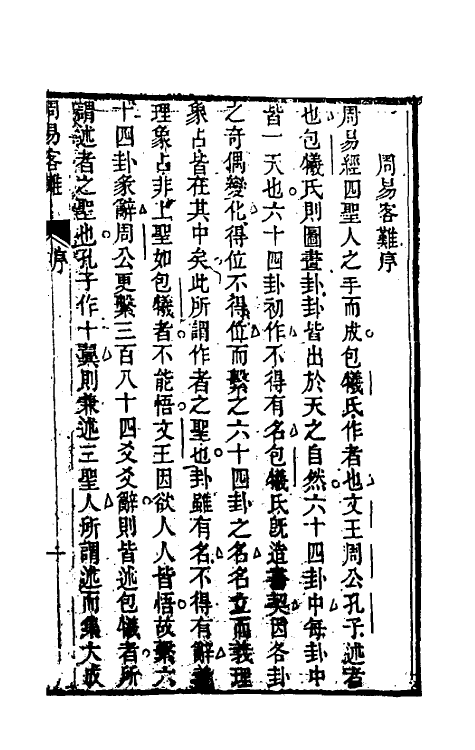 周易客難序
周易經四聖人之手而成包犧氏作者也文王周公孔子述者
也包犧氏則圖畫卦卦皆出於天之自然六十四卦中每卦中
皆一天也六十四卦初作不得有名包犧氏旣造書契因各卦
之奇偶變化得位不得位而繫之六十四卦之名名立而義理
象占皆在其中矣此所謂作者之聖也卦雖有名不得有辭義
理象占非上聖如包犧者不能悟文王因欲人人皆悟故繫六
十四卦彖辭周公更繫三百八十四爻爻辭則皆述包犧者所
謂述者之聖也孔子作十翼則兼述三聖人所謂述而集大成
周易客難
序